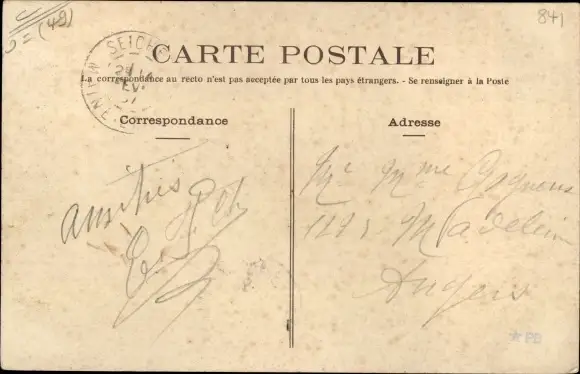 = (49)
841
SEICHE
MAINE
CARTE POSTALE
La correspondance au recto n'est pas acceptée par tous les pays étrangers. - Se renseigner à la Poste
Correspondance
Adresse
Amitiés
Mr Mme
Madeleine
Angers
PB